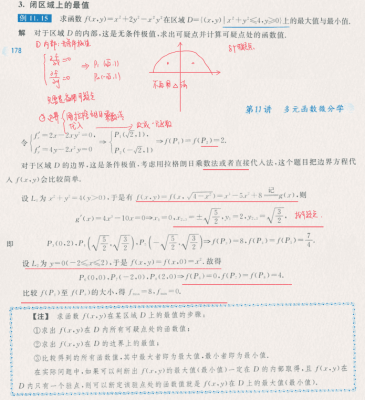 3. 闭区域上的最值
例 11.15 求函数 f(x,y)=x²+2y²-x²y² 在区域 D={(x,y)|x²+y²≤4,y≥0} 上的最大值与最小值.
解 对于区域 D 的内部,这是无条件极值,求出可疑点并计算可疑点处的函数值.
178
第11讲 多元函数微分学
令 { f'ₓ=2x-2xy²=0, f'ᵧ=4y-2x²y=0 ⇒ { P₁(√2,1), P₂(-√2,1) ⇒ f(P₁)=f(P₂)=2.
对于区域 D 的边界,这是条件极值,考虑用拉格朗日乘数法或者直接代入法,这个题目把边界方程代
入 f(x,y) 会比较简单.
设 L₁ 为 x²+y²=4(y>0),于是有 f(x,y)=f(x,√(4-x²))=x⁴-5x²+8 记 g(x),则
g'(x)=4x³-10x=0⇒x₁=0,x₂,₃=±√(5/2),y₁=2,y₂,₃=√(3/2),
即 P₃(0,2),P₄(√(5/2),√(3/2)),P₅(-√(5/2),√(3/2))⇒f(P₃)=8,f(P₄)=f(P₅)=7/4.
设 L₂ 为 y=0(-2≤x≤2),于是 f(x,y)=f(x,0)=x²,故得
P₆(0,0),P₇(-2,0),P₈(2,0)⇒f(P₆)=0,f(P₇)=f(P₈)=4.
比较 f(P₁) 至 f(P₈) 的大小,得 fₘₐₓ=8,fₘᵢₙ=0.
【注】 求函数 f(x,y) 在某区域 D 上的最值的步骤:
①求出 f(x,y) 在 D 内所有可疑点处的函数值;
②求出 f(x,y) 在 D 的边界上的最值;
③比较得到的所有函数值,其中最大者即为最大值,最小者即为最小值.
在实际问题中,如果可以判断出 f(x,y) 的最大值(最小值)一定在 D 的内部取得,且 f(x,y) 在
D 内只有一个驻点,则可以断定该驻点处的函数值就是 f(x,y) 在 D 上的最大值(最小值).